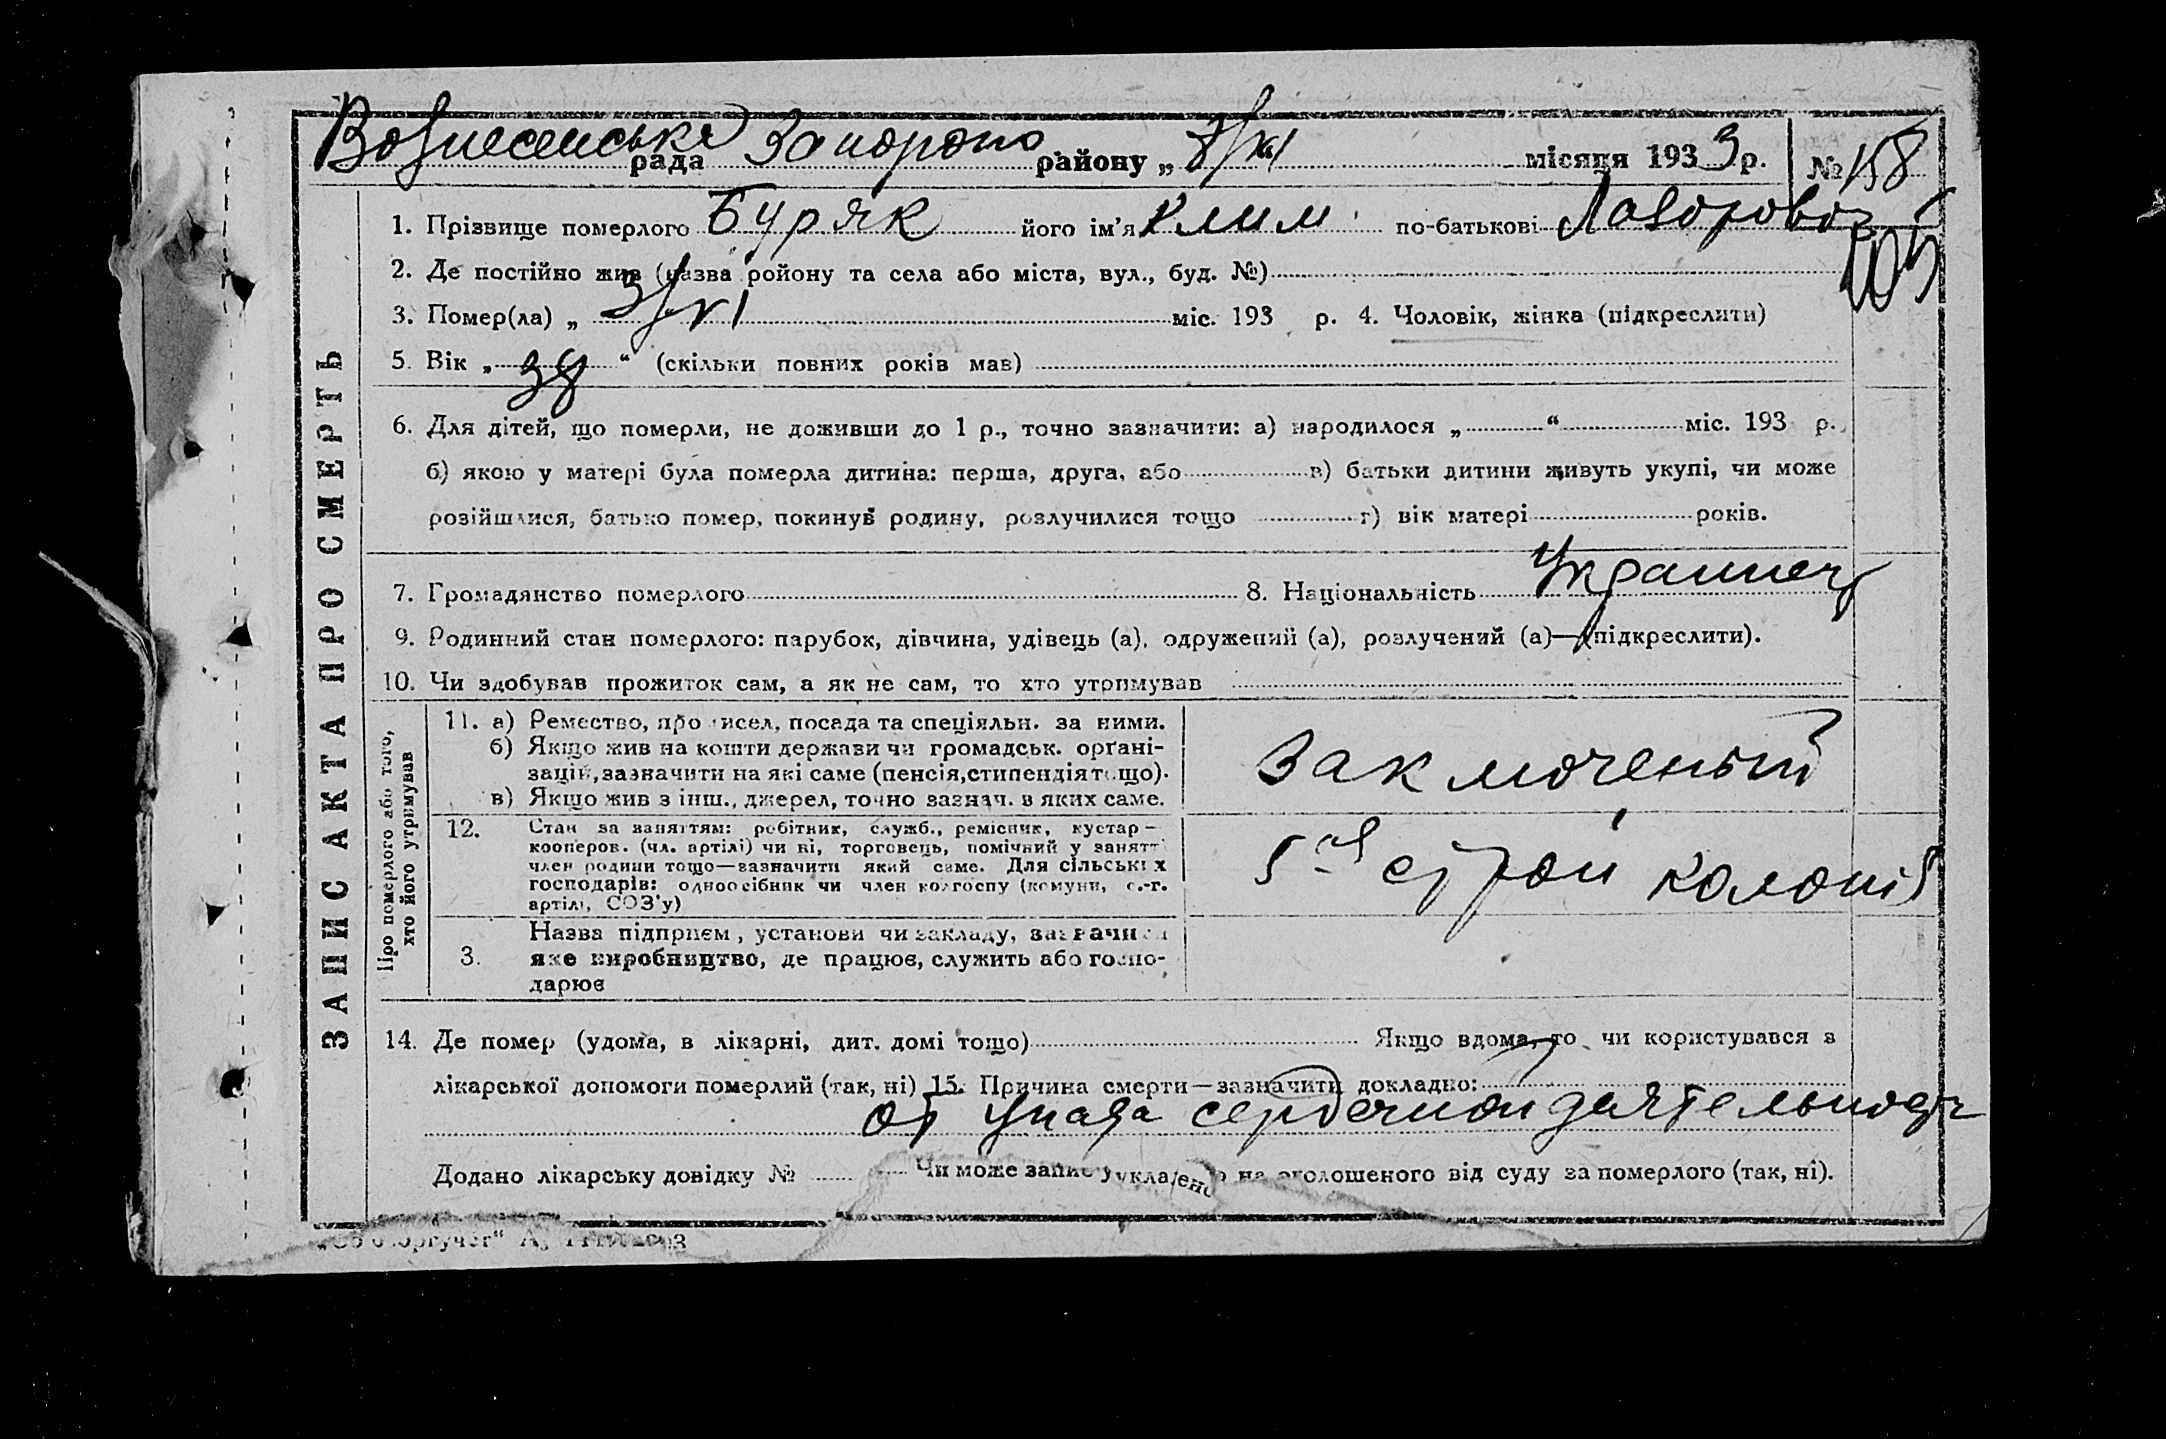 Вознесенська рада Запорожс району „ 8/VI місяця 1933 р. № 158
1. Прізвище померлого Буряк його ім’я Клим по-батькові
2. Де постійно жив (назва ройону та села або міста, вул., буд. №)
3. Помер(ла) „ 3/VI міс. 193 р. 4. Чоловік, жінка (підкреслити)
5. Вік „ “ (скільки повних років мав)
6. Для дітей, що померли, не доживши до 1 р., точно зазначити: а) народилося „ “ міс. 193 р.
б) якою у матері була померла дитина: перша, друга, або в) батьки дитини живуть укупі, чи може
розійшлися, батько помер, покинув родину, розлучилися тощо г) вік матері років.
7. Громадянство померлого 8. Національність Украинец
9. Родинний стан померлого: парубок, дівчина, удівець (а), одружений (а), розлучений (а)—(підкреслити).
10. Чи здобував прожиток сам, а як не сам, то хто утримував
ЗАПИС АКТА ПРО СМЕРТЬ
Про померлого або того,
хто його утримував
11. а) Ремество, промисел, посада та спеціяльн. за ними.
б) Якщо жив на кошти держави чи громадськ. орґані-
зацій, зазначити на які саме (пенсія, стипендія тощо).
в) Якщо жив з інш., джерел, точно зазнач. в яких саме.
Заключеный
12. Стан за заняттям: робітник, служб., ремісник, кустар—
кооперов. (чл. артілі) чи ні, торговець, помічний у занятті
член родини тощо—зазначити який саме. Для сільських
господарів: одноосібник чи член колгоспу (комуни, с.-г.
артілі, СОЗ’у)
5 строй колонія
Назва підприєм, установи чи закладу, зазначити
3. яке виробництво, де працює, служить або госпо-
дарює
14. Де помер (удома, в лікарні, дит. домі тощо) Якщо вдома, то чи користувався з
лікарської допомоги померлий (так, ні) 15. Причина смерти—зазначити докладно:
от упада сердечной деятельности
Додано лікарську довідку № Чи може запис укладено на оголошеного від суду за померлого (так, ні).